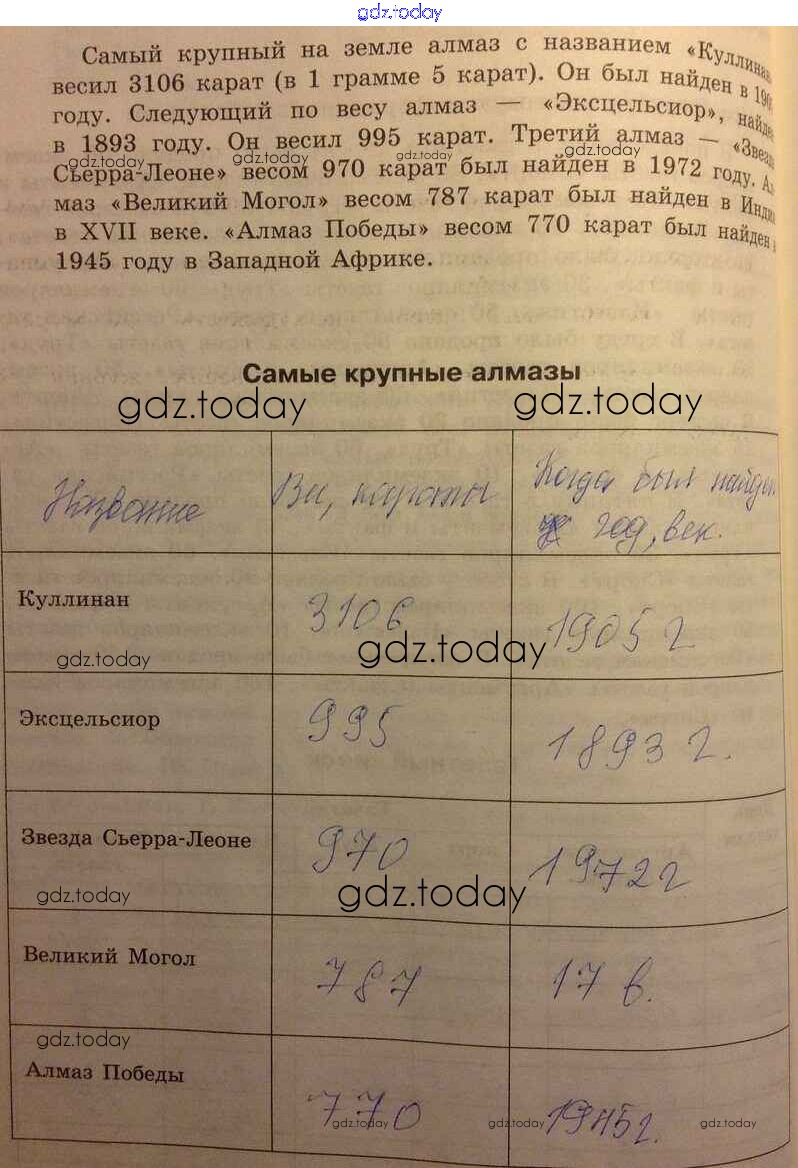 gdz.today
Самый крупный на земле алмаз с названием «Куллинан
весил 3106 карат (в 1 грамме 5 карат). Он был найден в
году. Следующий по весу алмаз — «Эксцельсиор»,
в 1893 году. Он весил 995 карат. Третий алмаз —
gdz.today gdz.today gdz.today gdz.today
Сьерра-Леоне» весом 970 карат был найден в 1972 году.
маз «Великий Могол» весом 787 карат был найден в
в XVII веке. «Алмаз Победы» весом 770 карат был найден
1945 году в Западной Африке.
Самые крупные алмазы
gdz.today gdz.today
Название Вес, караты Когда был найден
год, век.
Куллинан 3106 1905 г
gdz.today gdz.today
Эксцельсиор 995 1893 г.
Звезда Сьерра-Леоне 970 1972 г
gdz.today gdz.today
Великий Могол 787 17 в.
gdz.today
Алмаз Победы 770 1945 г.
gdz.today gdz.today gdz.today